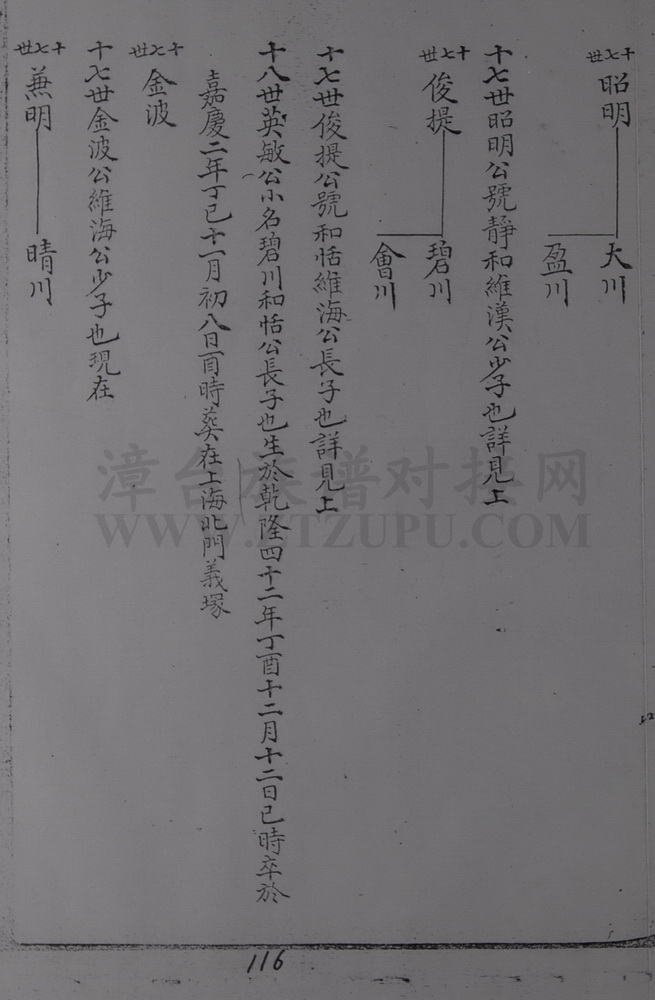 十七世
昭明
大川
盈川
十七世昭明公號靜和維漢公少子也詳見上
十七世
俊提
碧川
會川
十七世俊提公號和恬維海公長子也詳見上
十八世英敏公小名碧川和恬公長子也生於乾隆四十二年丁酉十二月十二日巳時卒於
嘉慶二年丁巳十一月初八日酉時葬在上海北門義塚
十七世
金波
十七世金波公維海公少子也現在
十七世
蕪明
晴川
漳台族谱对接网
WWW.ZTZUPU.COM
116